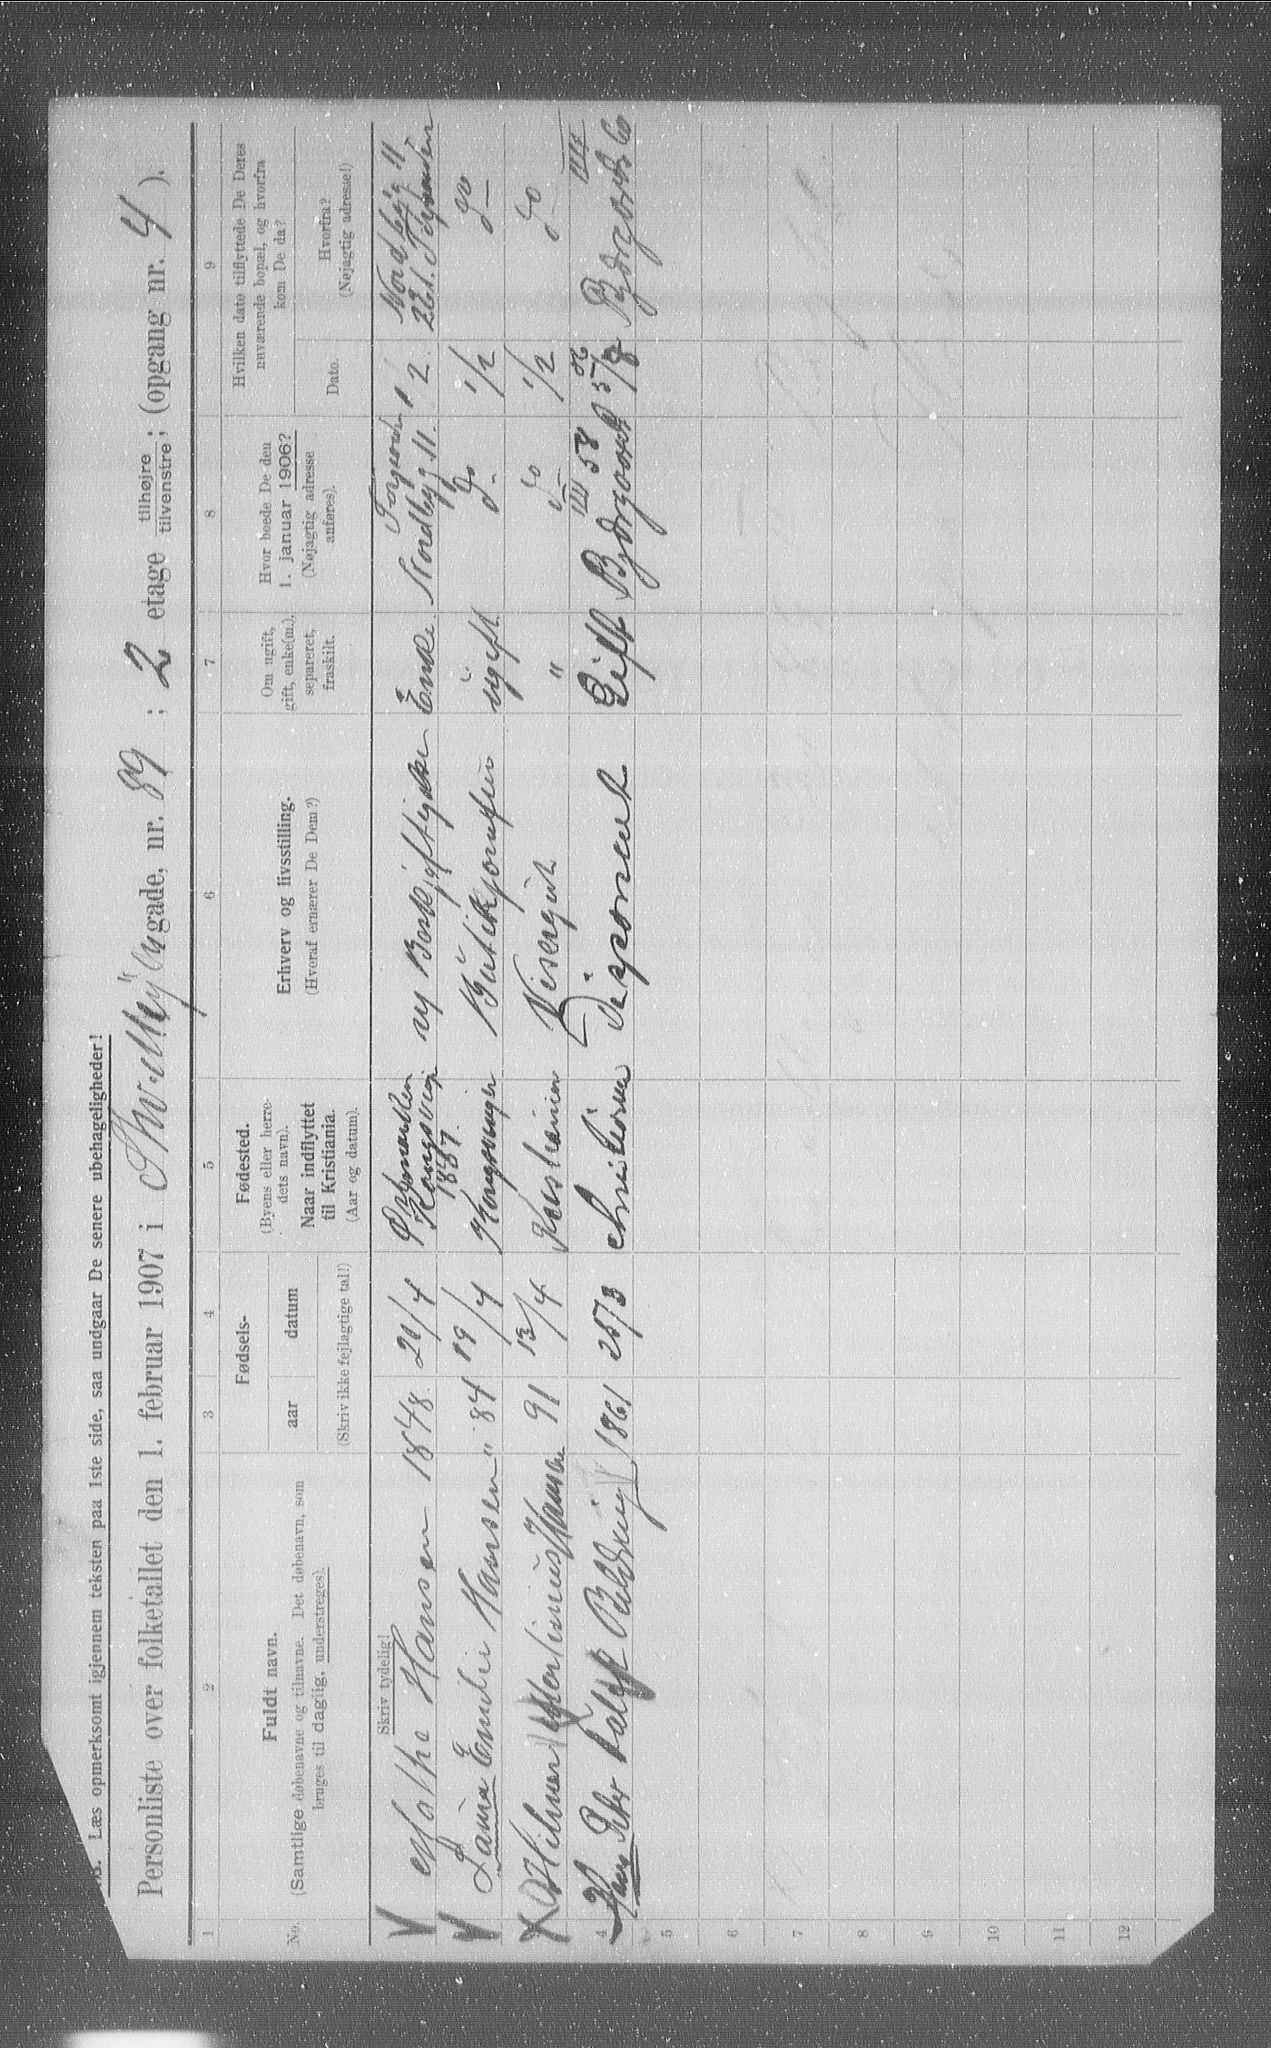 Læs opmerksomt igjennem teksten paa 1ste side, saa undgaar De senere ubehageligheder!
Personliste over folketallet den 1. februar 1907 i Thv. Meyersgade, nr. 89; 2 etage tilhøjre tilvenstre; (opgang nr. 4).
1 2 3 4 5 6 7 8 9
No.
Fuldt navn.
(Samtlige døbenavne og tilnavne. Det døbenavn, som
bruges til daglig, understreges).
Fødsels-
aar datum
(Skriv ikke fejlagtige tal!)
Fødested.
(Byens eller herre-
dets navn).
Naar indflyttet
til Kristiania.
(Aar og datum).
Erhverv og livsstilling.
(Hvoraf ernærer De Dem?)
Om ugift,
gift, enke(m.),
separeret,
fraskilt.
Hvor boede De den
1. januar 1906?
(Nøjagtig adresse
anføres).
Hvilken dato tilflyttede De Deres
nuværende bopæl, og hvorfra
kom De da?
Dato.
Hvorfra?
(Nøjagtig adresse!)
Skriv tydelig!
Mathe Hansen 1848 20/4
Kongsvin
1887.
Enke Nordbyg 11. 1/2 Nordbyg 11
Laura Emilie Hansen " 84 19/4 Kongsvinger Butikjomfru ugift do 1/2 do
Hilmar Martinius Hansen 91 13/4 Kristiania Visergut " do 1/2 do
4 Hans Peter Adolf 1861 25/3 Christiania Disponent Gift 58 5/8 06
5
6
7
8
9
10
11
12